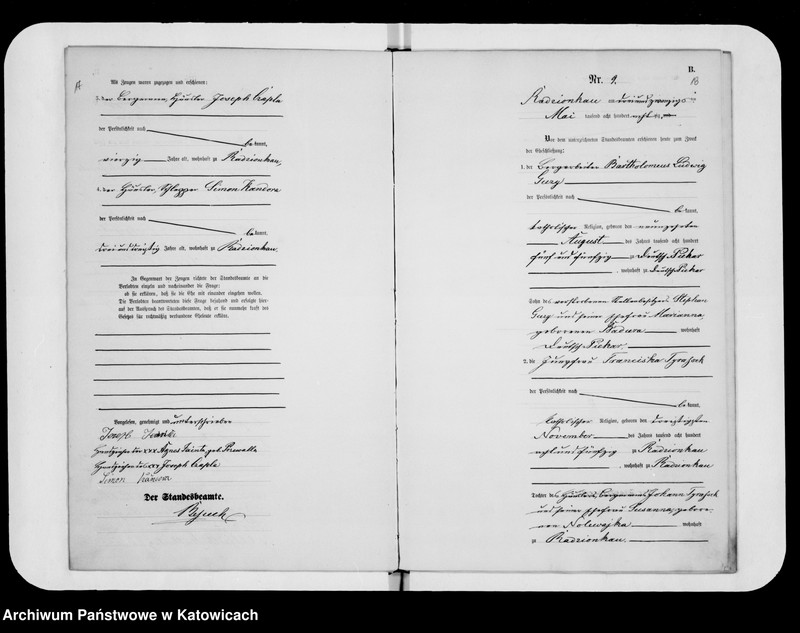 A
Als Zeugen waren zugezogen und erschienen:
3. der Bergmann, Häusler Joseph Czapla
der Persönlichkeit nach
be kannt,
vierzig Jahre alt, wohnhaft zu Radzionkau,
4. der Häusler, Schlepper Simon Kandora
der Persönlichkeit nach
be kannt,
Jahre alt, wohnhaft zu Radzionkau.
In Gegenwart der Zeugen richtete der Standesbeamte an die
Verlobten einzeln und nacheinander die Frage:
ob sie erklären, daß sie die Ehe mit einander eingehen wollen.
Die Verlobten beantworteten diese Frage bejahend und erfolgte hier-
auf der Ausspruch des Standesbeamten, daß er sie nunmehr kraft des
Gesetzes für rechtmäßig verbundene Eheleute erkläre.
Vorgelesen, genehmigt und unterschrieben
Joseph
Handzeichen der xxx Agnes geb.
Handzeichen des xxx Joseph Czapla
Simon
Der Standesbeamte.
B.
Nr. 9.
18
Radzionkau am dreiundzwanzigsten
Mai tausend acht hundert
Vor dem unterzeichneten Standesbeamten erschienen heute zum Zweck
der Eheschließung:
1. der Bergarbeiter Bartholomeus Ludwig
Gurg
der Persönlichkeit nach
be kannt,
katholischer Religion, geboren den neunzehnten
August des Jahres tausend acht hundert
fünf und fünfzig zu Deutsch Piekar
, wohnhaft zu Deutsch Piekar
Sohn des verstorbenen Stellenbesitzers Stephan
Gurg und seiner Ehefrau Marianna,
geborenen Badura wohnhaft
Deutsch Piekar.
2. die Jungfrau Franciska
der Persönlichkeit nach
be kannt,
katholischer Religion, geboren den dreißigsten
November des Jahres tausend acht hundert
acht und fünfzig zu Radzionkau
, wohnhaft zu Radzionkau
Tochter des Häuslers, Bergmanns Johann
und seiner Ehefrau Susanna, gebore-
nen Nolewajka wohnhaft
zu Radzionkau.
Archiwum Państwowe w Katowicach